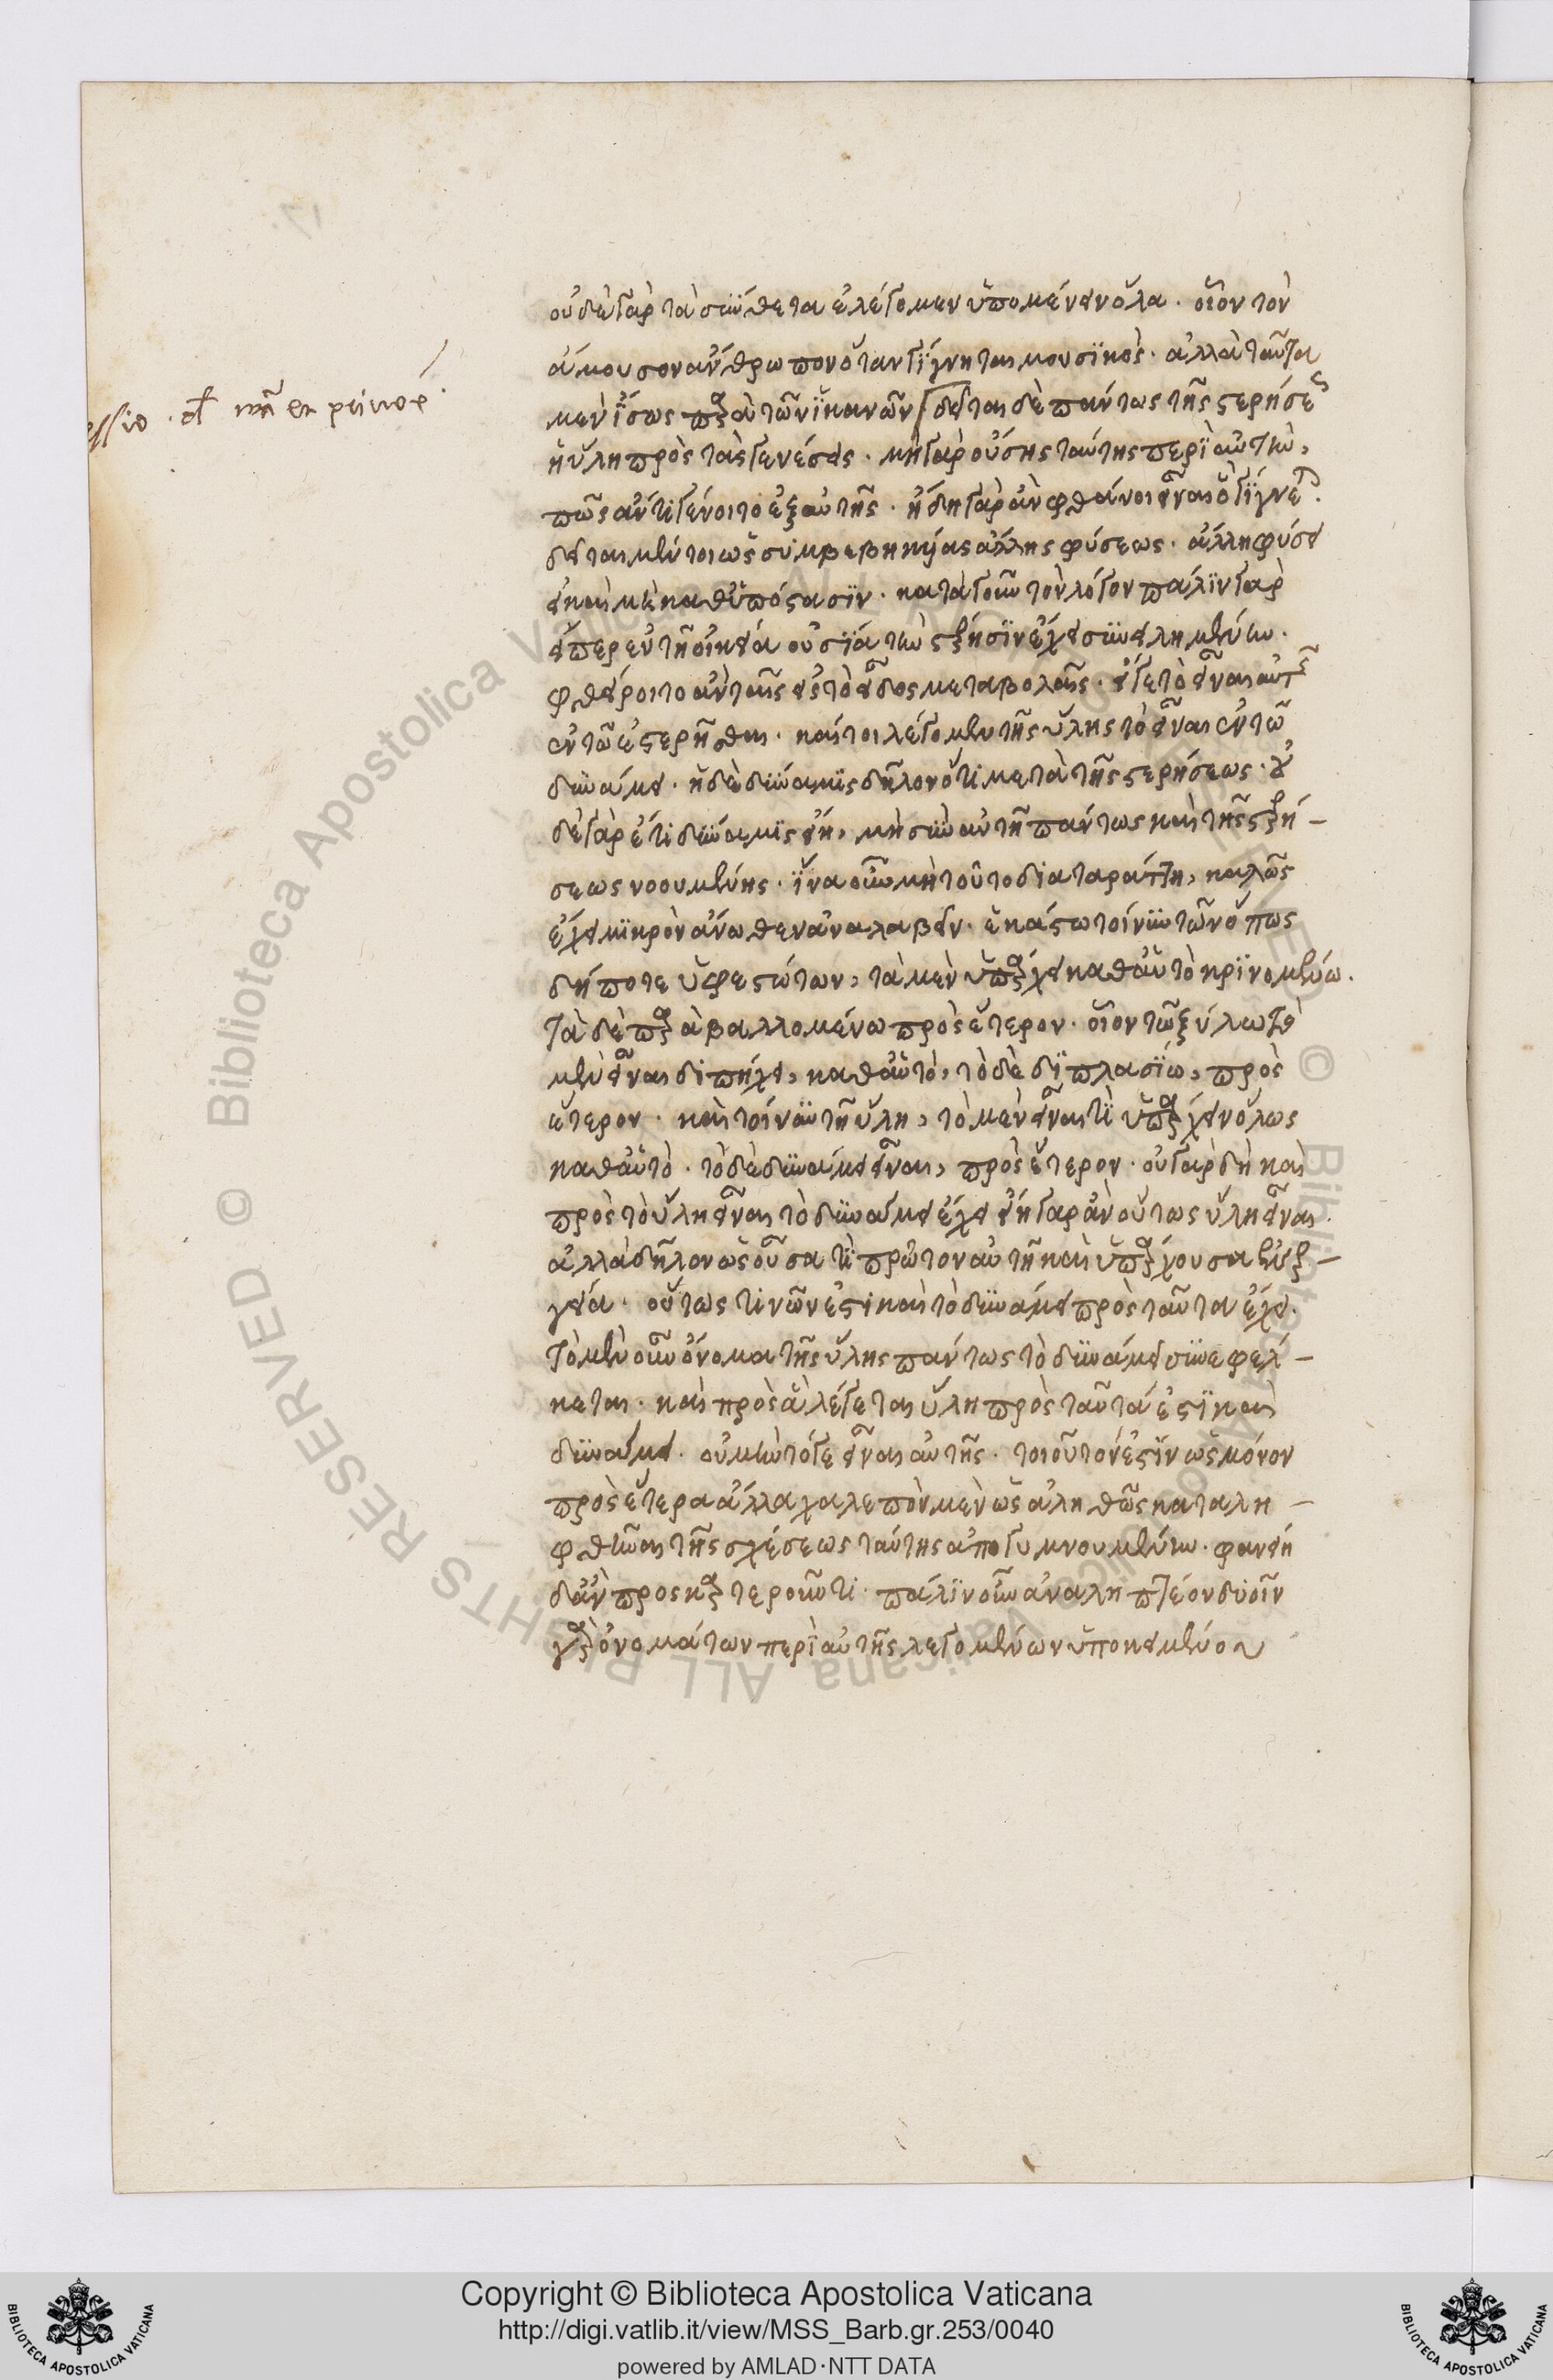 οὐδὲ γὰρ τὰ σύνθετα ἐλέγομεν ὑπομένειν ὅλα. οἷον τὸν
ἄμουσον ἄνθρωπον ὅταν γίγνηται μουσικός. ἀλλὰ ταῦτα
μὲν ἴσως παρὰ τῶν ἱκανῶν δεῖται δὲ πάντως τῆς στερήσεως
ἡ ὕλη πρὸς τὰς γενέσεις. μὴ γὰρ οὔσης ταύτης περὶ αὐτὴν,
πῶς ἄν τι γένοιτο ἐξ αὐτῆς. ἤδη γὰρ ἂν φθάνοι εἶναι ὃ γίγνεται.
δεῖται μέντοι ὡς συμβεβηκυίας ἄλλης φύσεως. ἄλλη φύσει
εἰ καὶ μὴ καθ' ὑπόστασιν. κατὰ γοῦν τὸν λόγον πάλιν γὰρ
εἴπερ ἐν τῇ οἰκείᾳ οὐσίᾳ τὴν στέρησιν ἔχει συνειλημμένην.
φθείροιτο ἂν ταῖς εἰς τὸ εἶδος μεταβολαῖς. εἴγε τὸ εἶναι αὐτῆς
ἐν τῷ ἐστερῆσθαι. καίτοι λέγομεν τῆς ὕλης τὸ εἶναι ἐν τῷ
δυνάμει. ἡ δὲ δύναμις δηλονότι μετὰ τῆς στερήσεως. οὐ
δὲ γὰρ ἔτι δύναμις εἴη, μὴ σὺν αὐτῇ πάντως καὶ τῆς στερή-
σεως νοουμένης. ἵνα οὖν μὴ τοῦτο διαταράττῃ, καλῶς
ἔχει μικρὸν ἄνωθεν ἀναλαβεῖν. ἑκάστῳ τοίνυν τῶν ὅπως
δήποτε ὑφεστώτων, τὰ μὲν ὑπάρχει καθ' αὑτὸ κρινομένῳ.
τὰ δὲ παραβαλλομένῳ πρὸς ἕτερον. οἷον τῷ ξύλῳ τὸ
μὲν εἶναι διπήχει, καθ' αὑτό, τὸ δὲ διπλασίῳ, πρὸς
ἕτερον. καὶ τοίνυν τῇ ὕλῃ, τὸ μὲν εἶναί τι ὑπάρχειν ὅλως
καθ' αὑτὸ. τὸ δὲ δυνάμει εἶναι, πρὸς ἕτερον. οὐ γὰρ δὴ καὶ
πρὸς τὸ ὕλη εἶναι τὸ δυνάμει ἔχει εἴη γὰρ ἂν οὕτως ὕλη εἶναι.
ἀλλὰ δῆλον ὡς οὖσά τι πρῶτον αὐτὴ καὶ ὑπάρχουσα ἐνερ-
γείᾳ. οὕτως τινῶν ἐστι καὶ τὸ δυνάμει πρὸς ταῦτα ἔχει.
τὸ μὲν οὖν ὄνομα τῆς ὕλης πάντως τὸ δυνάμει συνεφέλ-
κεται. καὶ πρὸς ἃ λέγεται ὕλη πρὸς ταῦτά ἐστι καὶ
δυνάμει. οὐ μὴν τόγε εἶναι αὐτῆς. τοιοῦτόν ἐστιν ὡς μόνον
πρὸς ἕτερα ἀλλὰ χαλεπὸν μὲν ὡς ἀληθῶς καταλη-
φθῆναι τῆς σχέσεως ταύτης ἀπογυμνουμένην. φανείη
δ' ἂν προσκαρτεροῦντι. πάλιν οὖν ἀναληπτέον δυοῖν
γὰρ ὀνομάτων περὶ αὐτῆς λεγομένων ὑποκειμένου
Copyright © Biblioteca Apostolica Vaticana
http://digi.vatlib.it/view/MSS_Barb.gr.253/0040
powered by AMLAD·NTT DATA